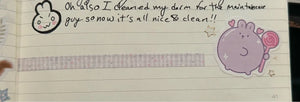 Oh also I cleaned my dorm for the maintenance
guy so now it's all nice & clean!!